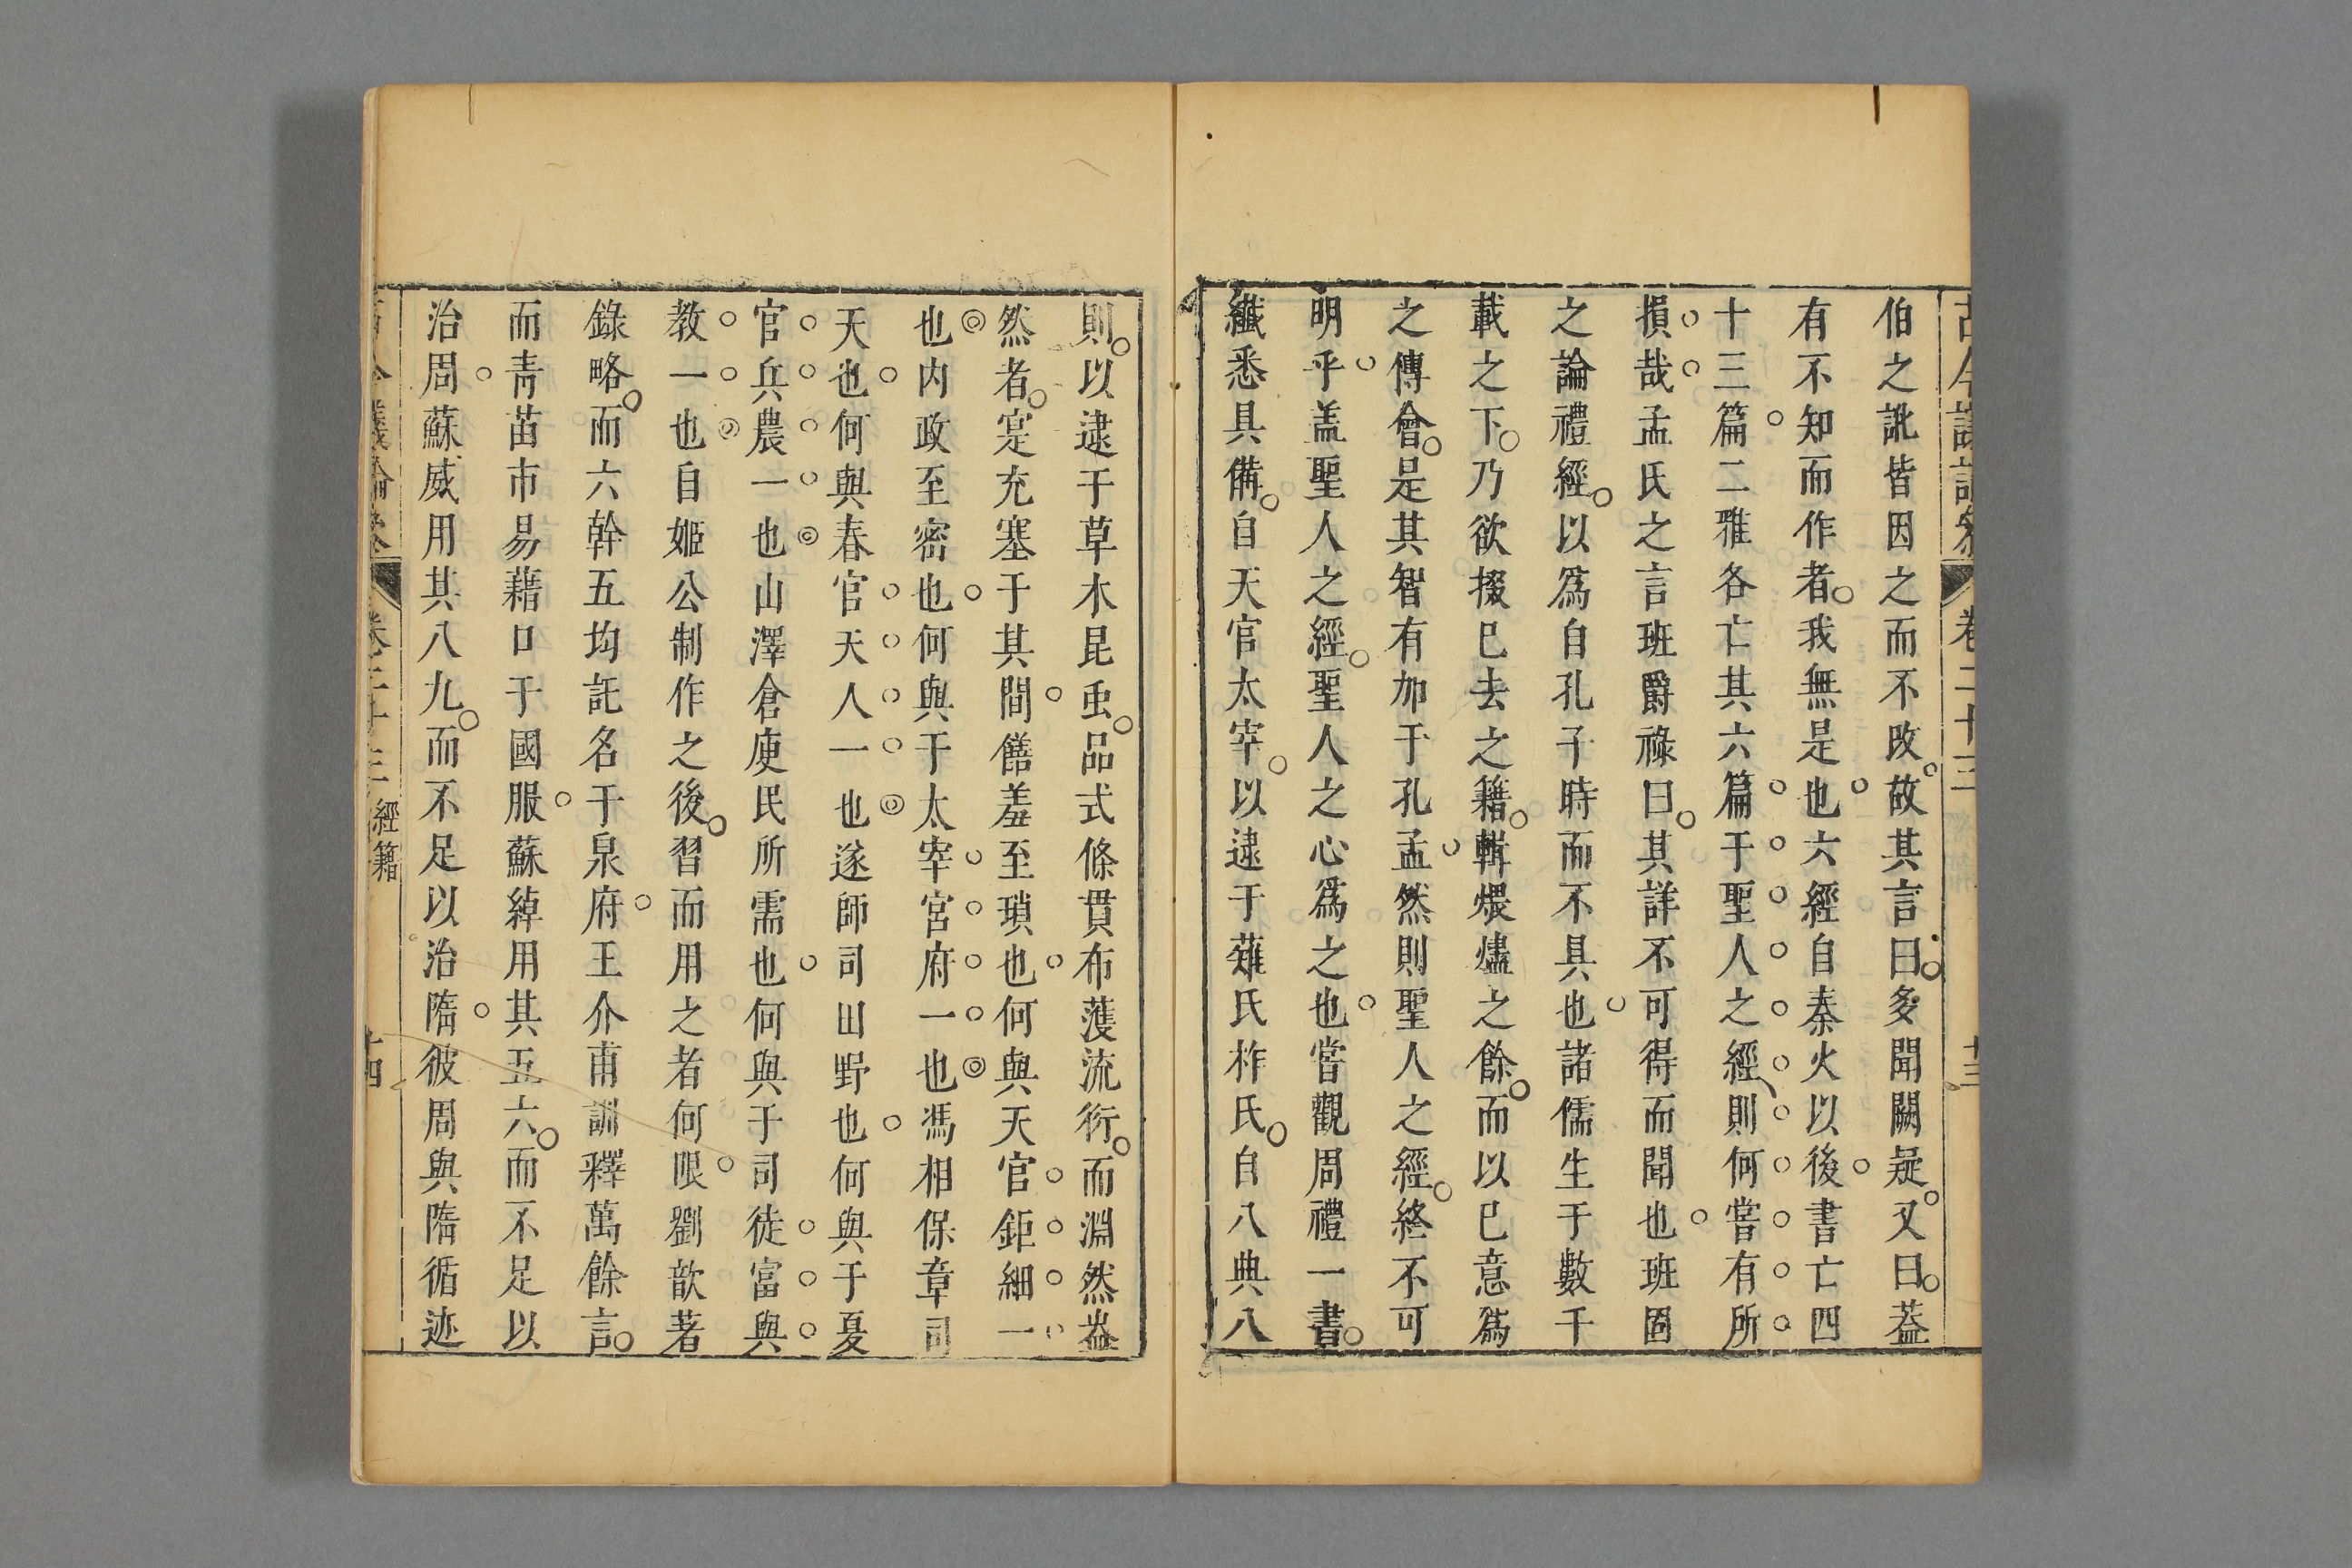 古今議論參 卷二十三 十三
伯之訛皆因之而不改故其言曰多聞闕疑又曰葢
有不知而作者我無是也六經自秦火以後書亡四
十三篇二雅各亡其六篇于聖人之經則何嘗有所
損哉孟氏之言班爵祿曰其詳不可得而聞也班固
之論禮經以爲自孔子時而不具也諸儒生于數千
載之下乃欲掇巳去之籍輯煨燼之餘而以巳意爲
之傳會是其智有加于孔孟然則聖人之經終不可
明乎盖聖人之經聖人之心爲之也嘗觀周禮一書
纖悉具備自天官太宰以逮于薙氏柞氏自八典八
則以逮于草木昆虫品式條貫布濩流衍而淵然㪷
然者寔充塞于其間饍羞至瑣也何與天官鉅細一
也内政至密也何與于太宰宮府一也馮相保章司
天也何與春官天人一也遂師司田野也何與于夏
官兵農一也山澤倉庾民所需也何與于司徒富與
教一也自姬公制作之後習而用之者何限劉歆著
錄略而六幹五均託名于泉府王介甫訓釋萬餘言
而靑苗市易藉口于國服蘇綽用其五六而不足以
治周蘇威用其八九而不足以治隋彼周與隋循迹
古今議論參 卷二十三 經籍 十四